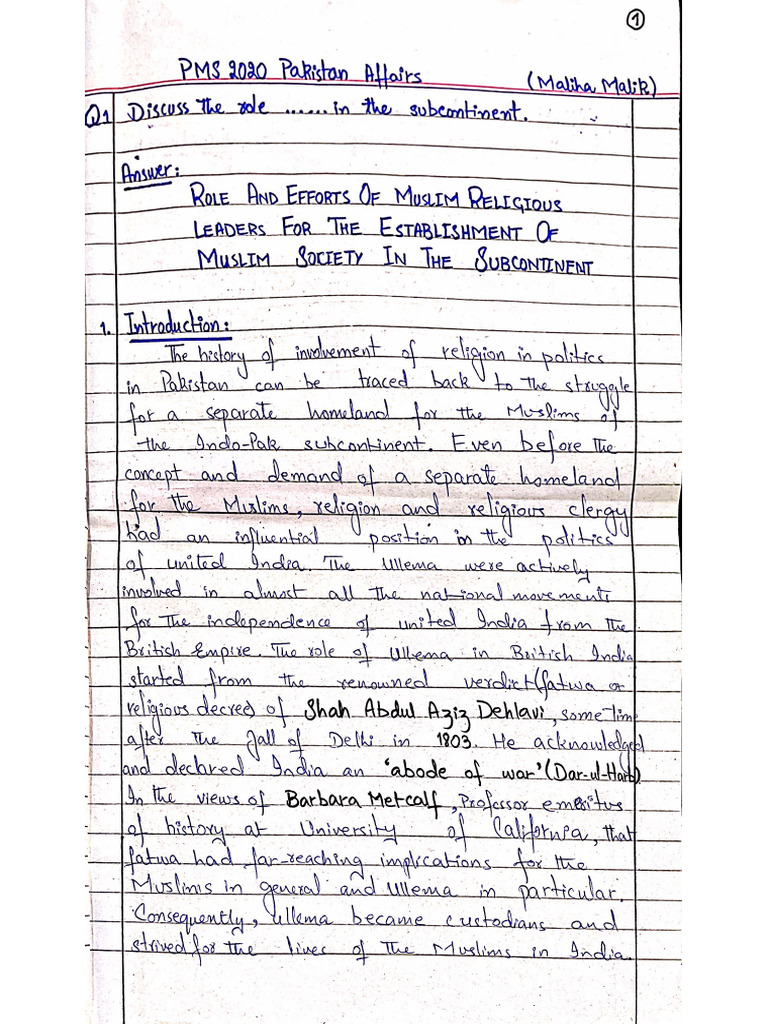 1
PMS 2020 Pakistan Affairs (Maliha Malik)
Q1 Discuss the role ...... in the subcontinent.
Answer:
ROLE AND EFFORTS OF MUSLIM RELIGIOUS
LEADERS FOR THE ESTABLISHMENT OF
MUSLIM SOCIETY IN THE SUBCONTINENT
1. Introduction:
The history of involvement of religion in politics
in Pakistan can be traced back to the struggle
for a separate homeland for the Muslims of
the Indo-Pak subcontinent. Even before the
concept and demand of a separate homeland
for the Muslims, religion and religious clergy
had an influential position in the politics
of united India. The Ullema were actively
involved in almost all the national movements
for the independence of united India from the
British Empire. The role of Ullema in British India
started from the renowned verdict (fatwa or
religious decree) of Shah Abdul Aziz Dehlavi, some time
after the fall of Delhi in 1803. He acknowledged
and declared India an 'abode of war' (Dar-ul-Harb).
In the views of Barbara Metcalf, Professor emeritus
of history at University of California, that
fatwa had far-reaching implications for the
Muslims in general and Ullema in particular.
Consequently, ullema became custodians and
strived for the lives of the Muslims in India.